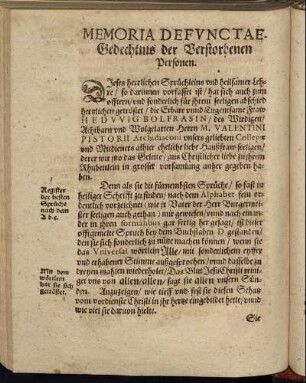 MEMORIA DEFVNCTAE.
Gedechtnis der Verstorbenen
Personen.
Diesen herrlichen Sprüchleins vnd heilsamer Leh-
re / so darinnen verfasset ist / hat sich auch zum
offtern / vnd sonderlich für ihrem seeligen abscheide
hertzlichen getröstet / die Erbare vnd Tugentsame Fraw
HEDVVIG BOLFRASIN / des Wirdigen /
Achtbarn vnd Wolgelarten Herrn M. VALENTINI
PISTORII Archidiaconi vnsers geliebten Collegen
vnd Mitdieners allhier eheliche liebe Haußfraw seeligen /
derer wir itzo das Geleite / aus Christlicher liebe zu ihrem
Rhubettlein in grosser versamlung anher gegeben ha-
ben.
Register
der besten
Sprüche
nach dem
A b c.
Denn als sie die fürnembsten Sprüche / so fast in
heiliger Schrifft zu finden / nach dem Alphabet fein or-
dentlich vorzeichnet / wie jr Vater der Herr Burgermei-
ster seeligen auch gethan / mir gewiesen / vnd nach einan-
der in ihren formalibus gar fertig her gesagt / ist dieser
offtgemelte Spruch bey dem Buchstaben D. gestanden /
den sie sich sonderlich zu nütz machen können / wenn sie
das Vniversal wörtlein Alle / mit sonderlichem eyffer
vnd erhabener Stimme außgesprochen / vnnd dasselbe zu
dreyen mahlen wiederholet / Das Blut Jesu Christi reini-
get vns von allen / allen / sagt sie allen vnsern Sün-
den. Anzuzeigen / wie tieff vnd fest sie diesen Schatz
vom verdienste Christi in jhr hertze eingebildet hette / vnnd
wie viel sie darvon hielte.
Mit dem
wörtlein
hat sie sich
getröstet.
Sie